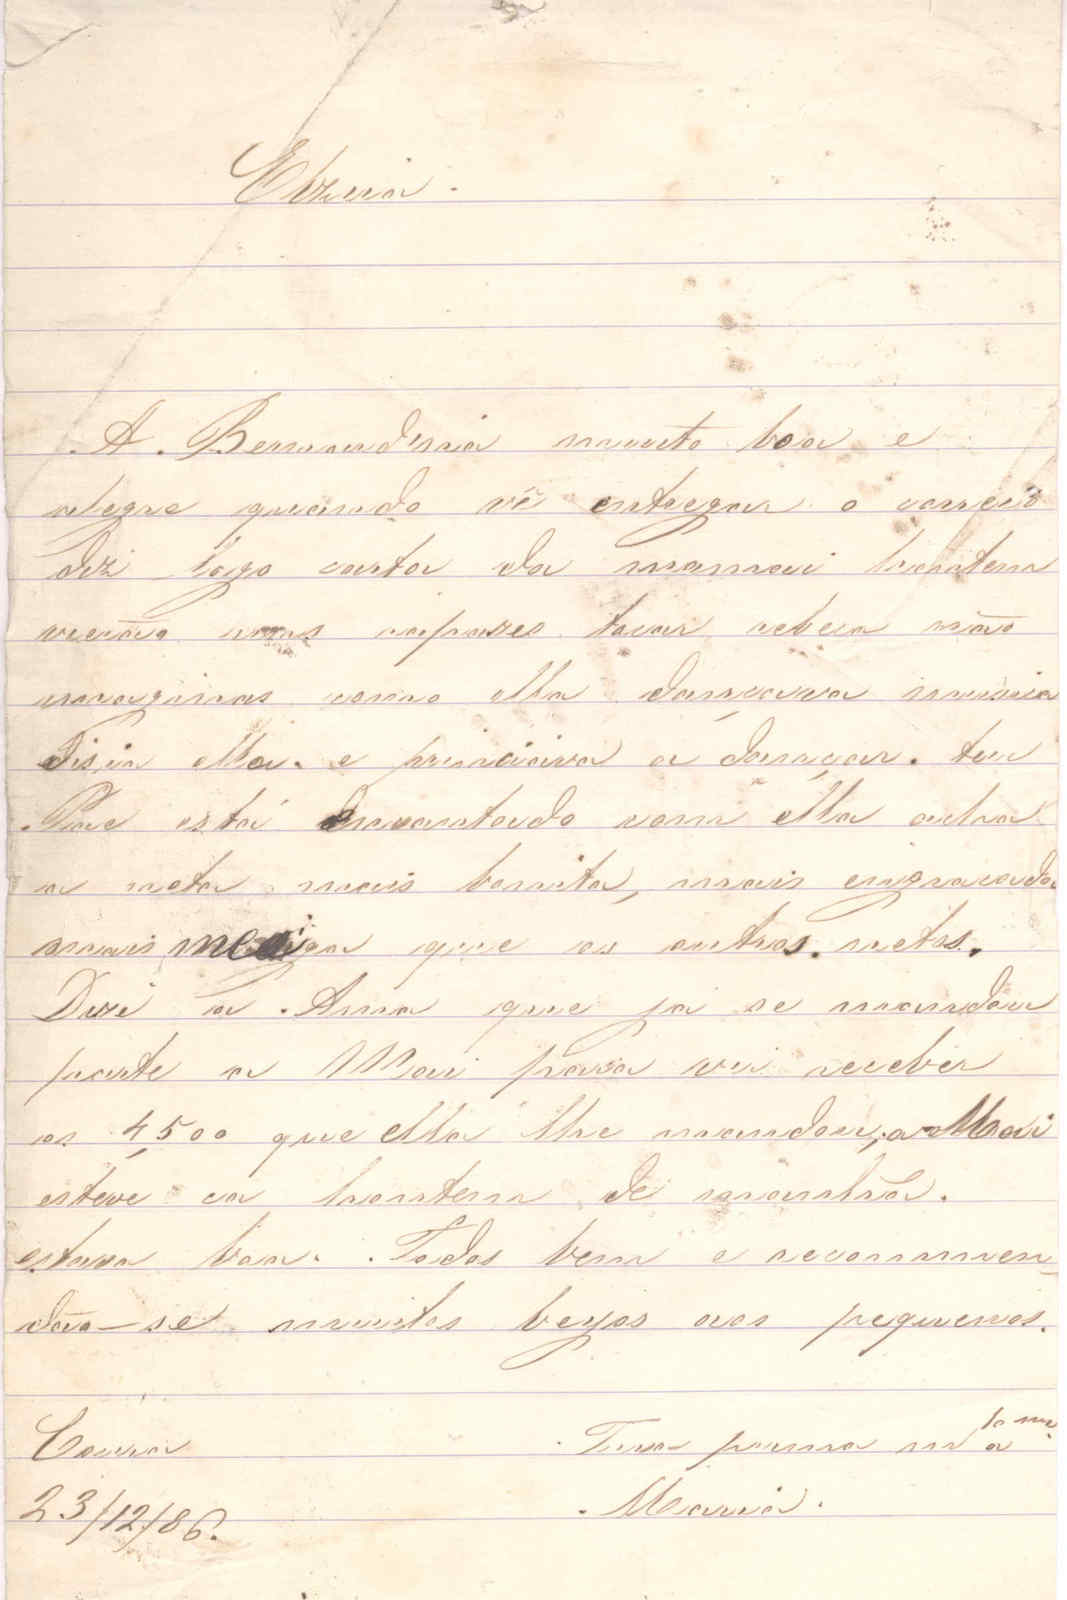 Elzira.
A Bernardina muito boa e
alegre quando vê entregar o correio
diz logo carta da mamai hontem
vierão uns rapazes tocar rebeca não
imaginas como ella dançava musica
disia ella. e principiava a dançar. teu
Pae está encantado com ella acha
a neta mais bonita, mais engraçada
mais meiga que os outros netos.
Dize a Anna que ja se mandou
parte a Mai para vir receber
os 4,500 que ella lhe mandou, a Mai
esteve ca hontem de manhã.
estava boa. Todos bem e recommen-
dão-se muitos beijos aos pequenos.
Coura
Tua prima m to a ma.
23/12/86.
Maria.